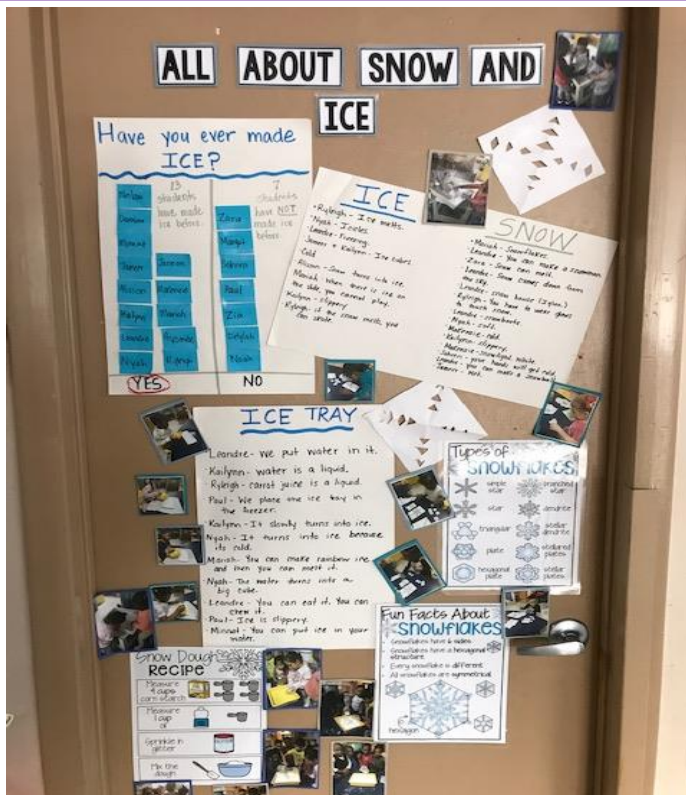 ALL ABOUT SNOW AND
ICE
Have you ever made
ICE?
13
students
have made
ice before.
7
students
have NOT
made ice
before.
Janen
Alison
Kailynn
Mariah
Leandre
Nyah
YES
Zara
Paul
Zia
Noah
NO
ICE
Ryleigh - Ice melts.
Nyah - Icicles.
Leandre - Running.
Kailynn - Ice cubes.
Cold
Alison - Snow turns into ice.
Mariah - When there is ice on
the slide, you cannot play.
Kailynn - slippery
Ryleigh - if the snow melts, you
can skate.
SNOW
Mariah - Snowflakes.
Leandre - You can make a snowman
Zara - Snow can melt.
Leandre - Snow comes down from
the sky.
Leandre - snow house (Igloo)
Ryleigh - You have to wear gloves
to touch snow.
Leandre - snowboots.
Nyah - soft.
Mackenzie - cold.
Kailynn - slippery.
your hands will get cold.
Leandre - you can make a snowball
ICE TRAY
Leandre - We put water in it.
Kailynn - water is a liquid.
Ryleigh - carrot juice is a liquid.
Paul - We place the ice tray in
the freezer.
Kailynn - It slowly turns into ice.
Nyah - It turns into ice because
its cold.
Mariah - You can make rainbow ice
and then you can melt it.
Nyah - The water turns into a
big cube.
Leandre - You can eat it. You can
chew it.
Paul - Ice is slippery.
Minnat - You can put ice in your
water.
Types of
SNOWFLAKES
simple
star
branched
star
star
dendrite
triangular
stellar
dendrite
plate
stellared
plates
hexagonal
plate
stellar
plates
Fun Facts About
SNOWFLAKES
Snowflakes have 6 sides
Snowflakes have a hexagonal
structure
Every snowflake is different
All snowflakes are symmetrical
hexagon
Snow Dough
RECIPE
Measure
4 cups
corn starch
Measure
1 cup
oil
Sprinkle in
glitter
Mix the
dough